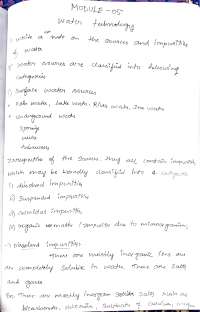 MODULE - 05
Water technology
1) write a note on the sources and impurities
of water
water sources are classified into following
categories
1) surface water sources
Rain water, Lake water, River water, Sea water
underground water
springs
wells
Tubewells
Impurities of the sources may all contain impurities
which may be broadly classified into 4 categories
1) dissolved impurities
2) suspended impurities
3) colloidal impurities
4) organic impurities due to microorganism
1) Dissolved impurities
these are mainly inorganic
are completely soluble in water. These are salts
and gases
These are mainly inorganic salts such as
bicarbonate, chlorides, sulphate of calcium,